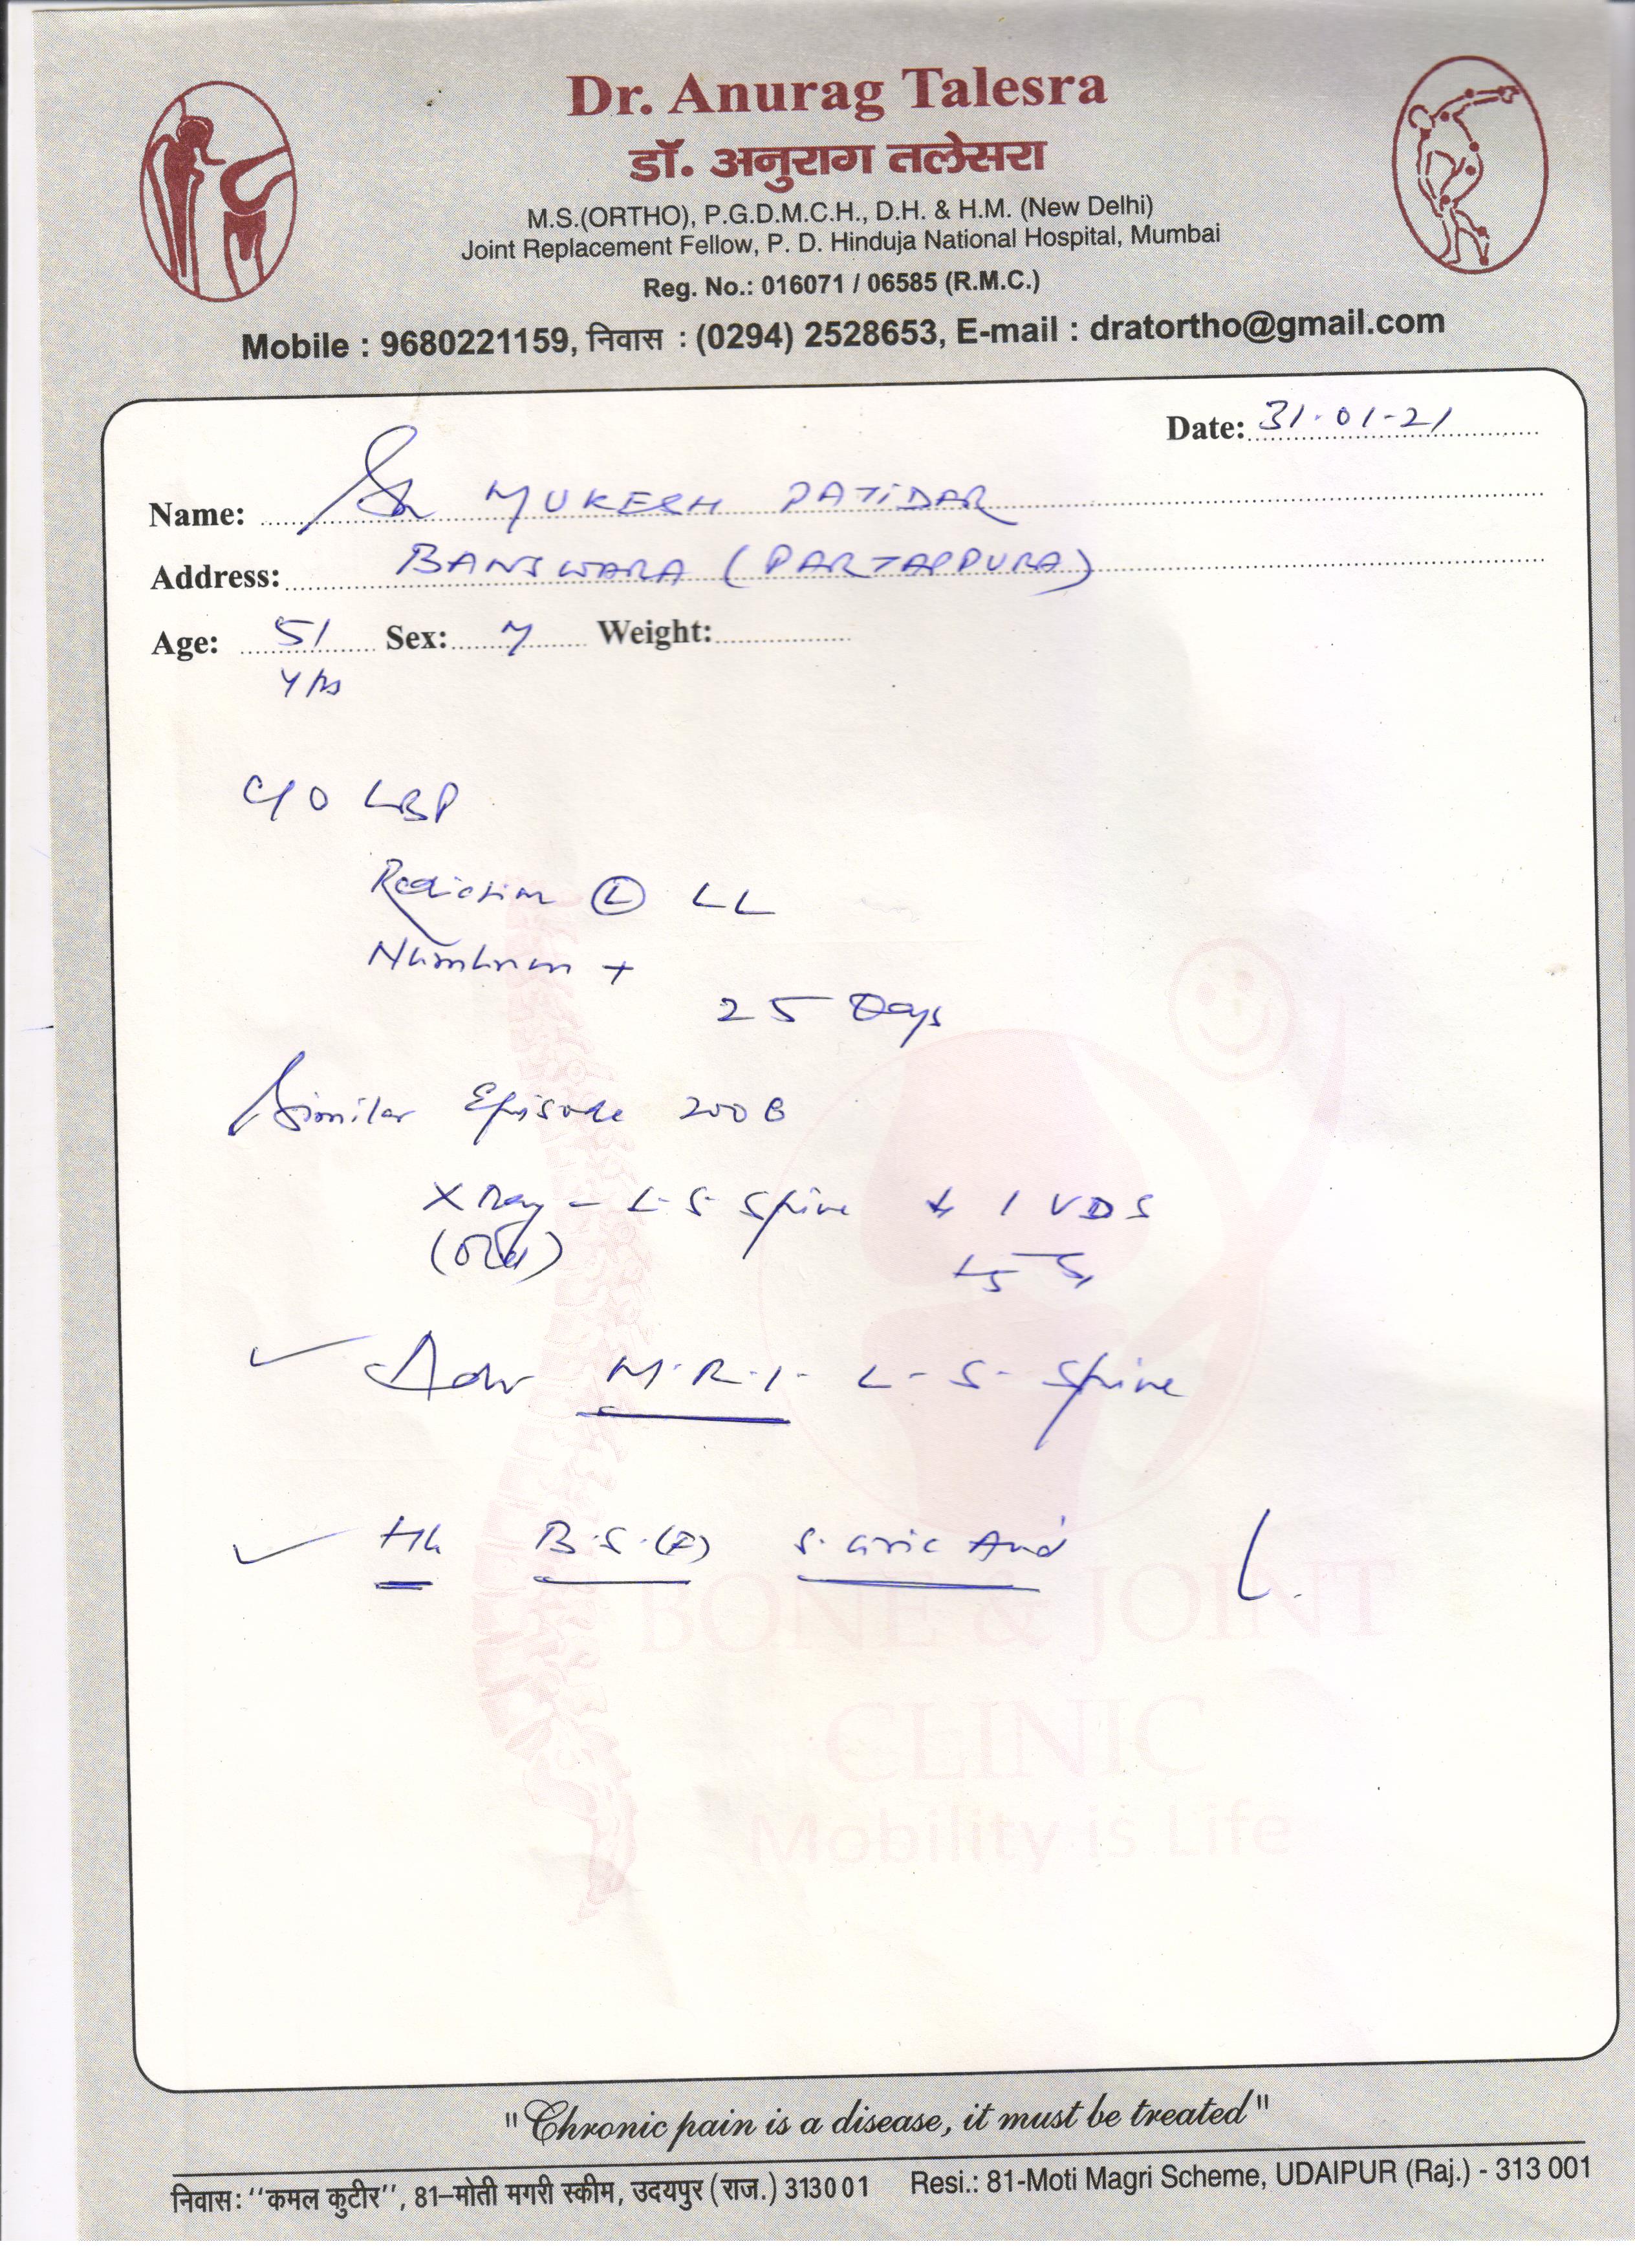 Dr. Anurag Talesra
डॉ. अनुराग तलेसरा
M.S.(ORTHO), P.G.D.M.C.H., D.H. & H.M. (New Delhi)
Joint Replacement Fellow, P. D. Hinduja National Hospital, Mumbai
Reg. No.: 016071 / 06585 (R.M.C.)
Mobile : 9680221159, निवास : (0294) 2528653, E-mail : dratortho@gmail.com
Date: 31-01-21
Name: MUKESH PATIDAR
Address: BANSWARA (PARTAPPURA)
Age: 51 Sex: M Weight:
Yrs
C/O LBP
Radiation Ⓛ LL
Numbness +
25 Days
Similar Episode 200
X Ray - L-S Spine ↓ IVDS
(Old) L5 S1
Adv M.R.I. L-S- Spine
Hb B.S.(R) S. Uric Acid
BONE & JOINT
CLINIC
Mobility is Life
"Chronic pain is a disease, it must be treated"
निवास: ‘‘कमल कुटीर’’, 81–मोती मगरी स्कीम, उदयपुर (राज.) 313001 Resi.: 81-Moti Magri Scheme, UDAIPUR (Raj.) - 313 001